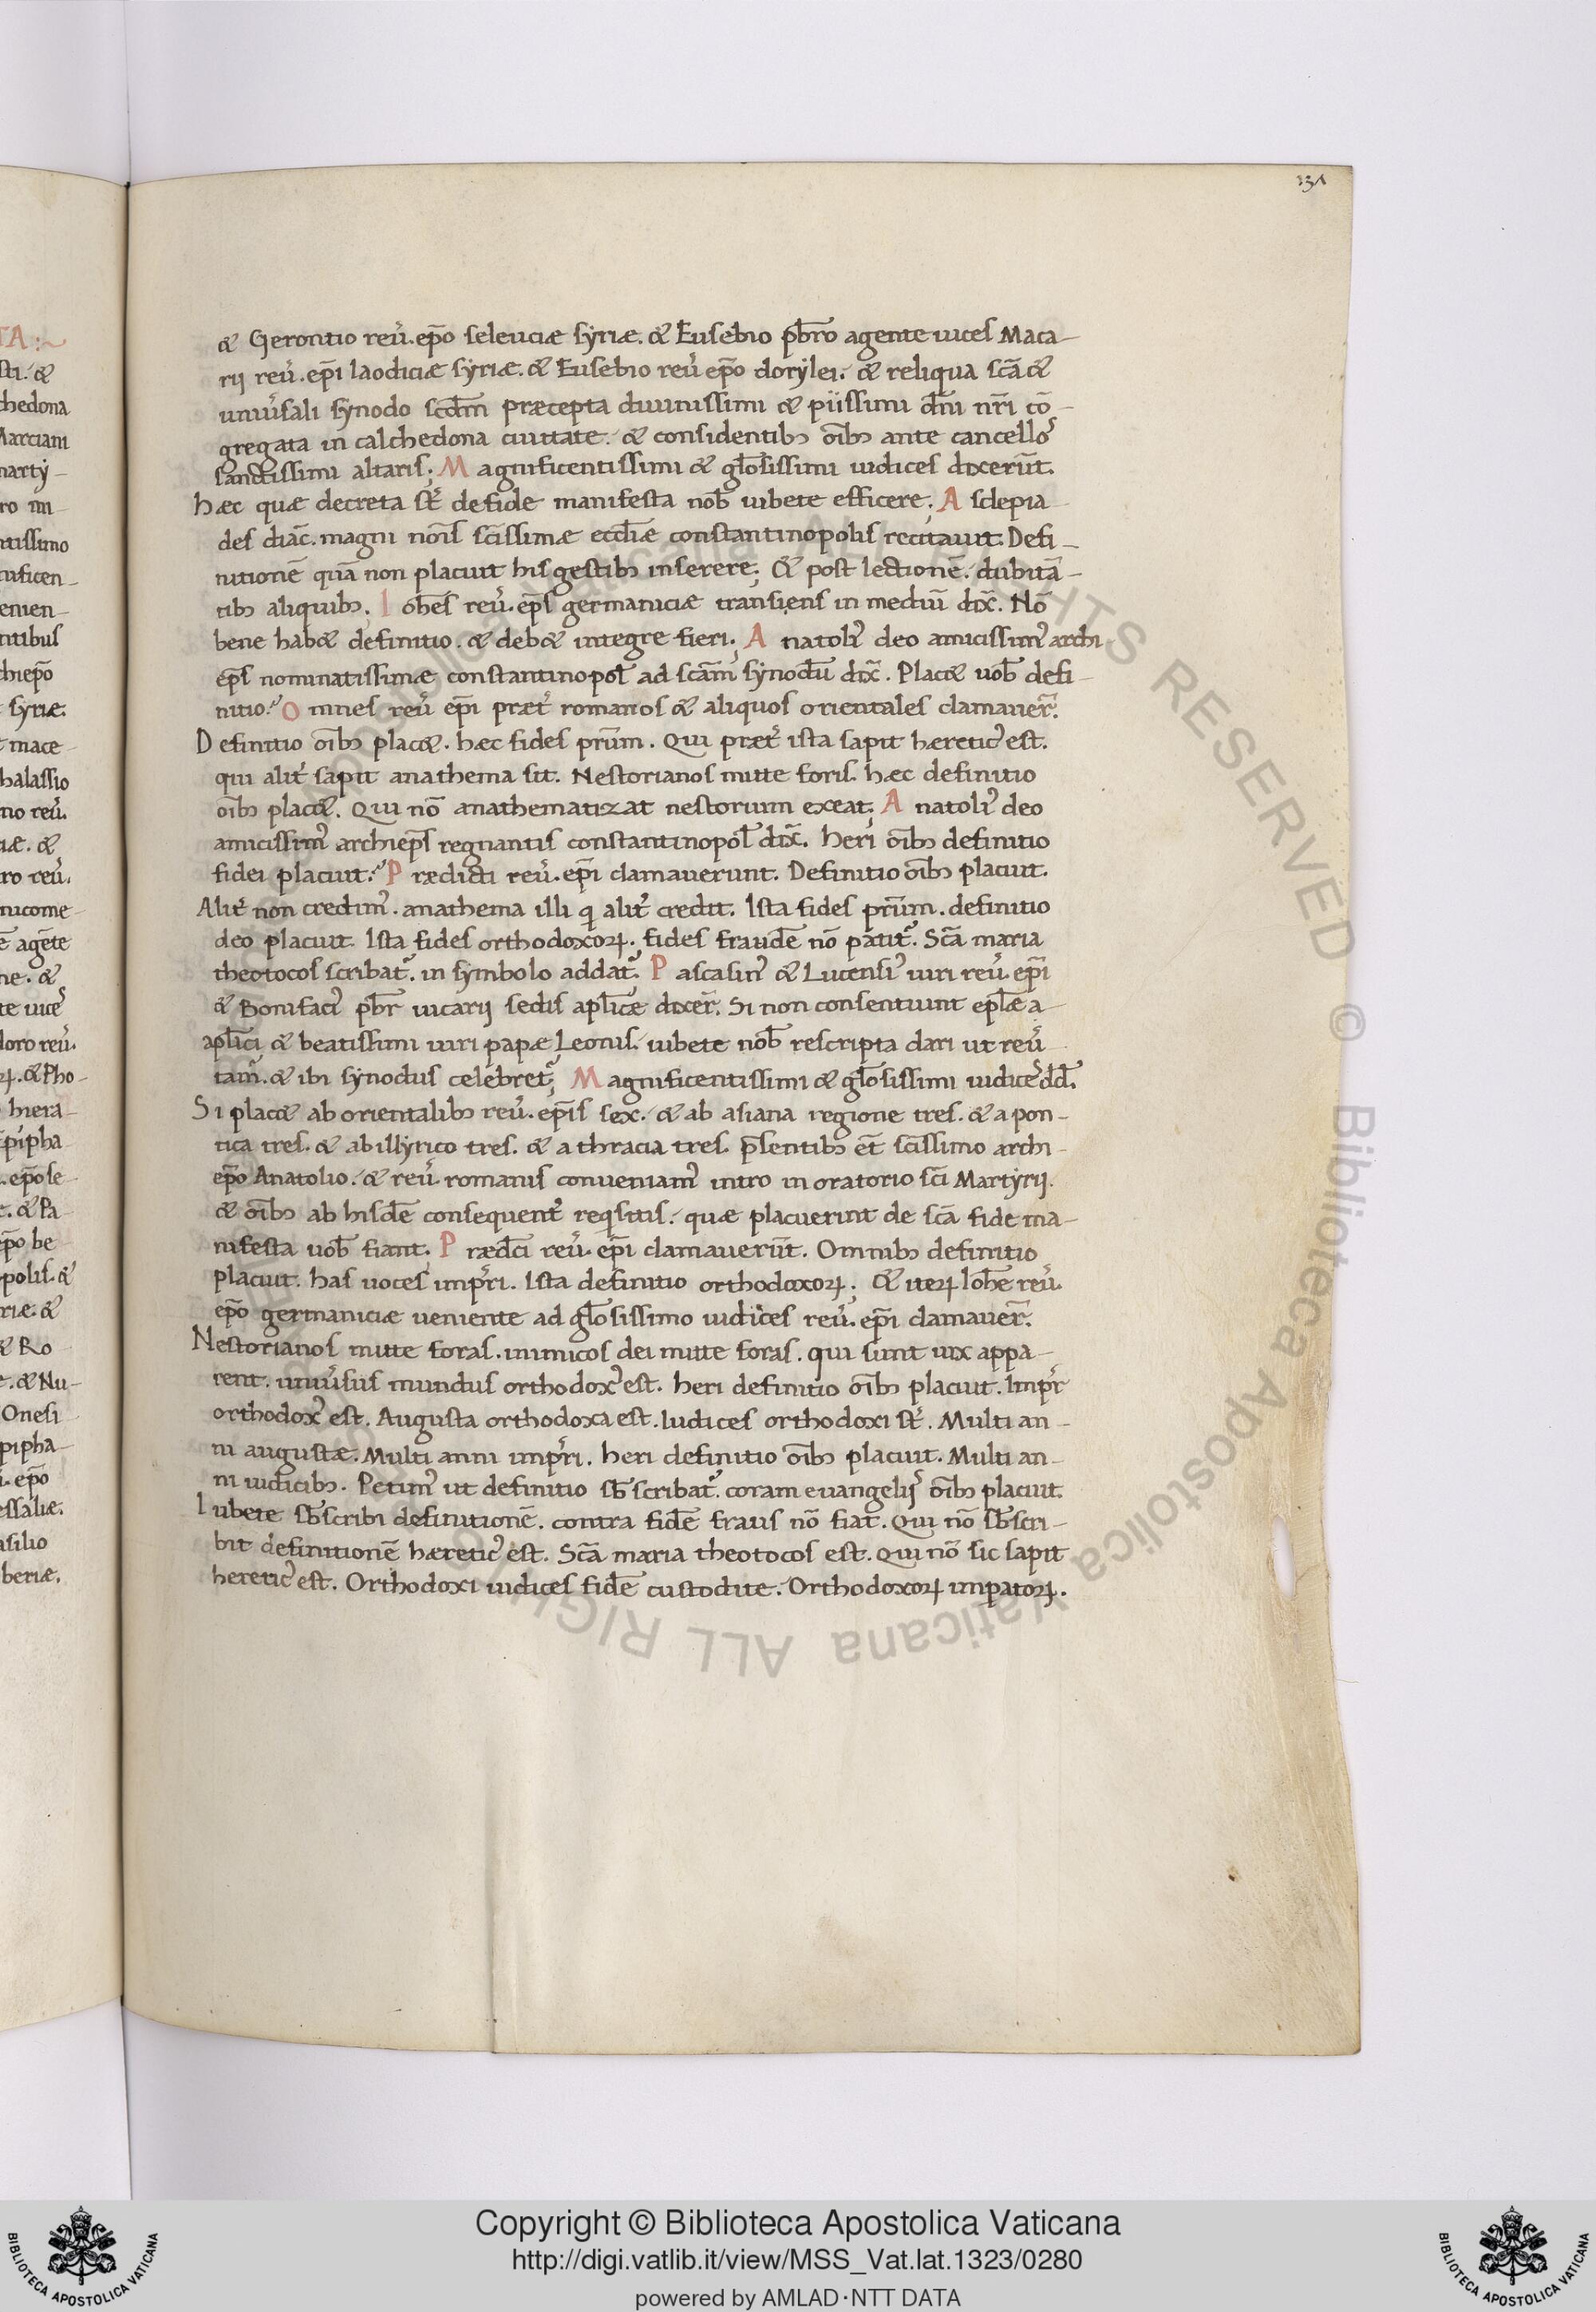 & Gerontio reu̅. ep̅o seleuciæ syriæ. & Eusebio pb̅ro agente uices Maca-
rij reu̅. ep̅i laodiciæ syriæ. & Eusebio reu̅ ep̅o dorylei. & reliqua sc̅a &
uniu̅sali synodo scd̅m præcepta diuinissimi & piissimi dn̅i nr̅i co̅-
gregata in calchedona ciuitate. & considentib; oi̅b; ante cancellos
sanctissimi altaris; Magnificentissimi & gl̅osissimi iudices dixeru̅t.
Hæc quæ decreta st̅ de fide manifesta nob̅ iubete efficere; Asclepia-
des diac̅. magni nois̅ sc̅issimæ eccl̅iæ constantinopolis recitauit. Defi-
nitione̅ qua̅ non placuit his gestib; inserere; & post lectione̅. dubita̅-
tib; aliquib; Ioh̅es reu̅. ep̅s germaniciæ transiens in mediu̅ dix̅. No̅
bene hab& definitio. & deb& integre fieri; Anatoli᾽ deo amicissim᾽ archi
ep̅s nominatissimæ constantinopol̅ ad sc̅am synodu̅ dix̅. Plac& uob̅ defi-
nitio? Omnes reu̅ ep̅i præt̅ romanos & aliquos orientales clamauer̅.
Definitio oi̅b; plac&. hæc fides pr̅um. Qui præt̅ ista sapit hæretic᾽ est.
qui alit̅ sapit anathema sit. Nestorianos mitte foris. hæc definitio
oi̅b; plac&. Qui no̅ anathematizat nestorium exeat; Anatoli᾽ deo
amicissim᾽ archiep̅s regnantis constantinopol̅ dix̅. Heri oi̅b; definitio
fidei placuit? Prædicti reu̅. ep̅i clamauerunt. Definitio oi̅b; placuit.
Alit̅ non credim᾽. anathema illi q̅ alit̅ credit. Ista fides pr̅um. definitio
deo placuit. Ista fides orthodoxoꝝ. fides fraude̅ no̅ patit᾽. Sc̅a maria
theotocos scribat᾽. in symbolo addat᾽. Pascasin᾽ & Lucensi᾽ uiri reu̅. ep̅i
& Bonifaci᾽ pb̅r uicarij sedis apl̅icæ dixer̅. Si non consentiunt epl̅æ a-
apl̅ici & beatissimi uiri papæ Leonis. iubete nob̅ rescripta dari ut reu̅-
tam᾽. & ibi synodus celebret᾽; Magnificentissimi & gl̅osissimi iudices dd̅.
Si plac& ab orientalib; reu̅. ep̅is sex. & ab asiana regione tres. & a pon-
tica tres. & ab illyrico tres. & a thracia tres. p̅sentib; et̅ sc̅issimo archi-
ep̅o Anatolio. & reu̅. romanis conueniam᾽ intro in oratorio sc̅i Martyrij.
& oi̅b; ab hisde̅ consequent̅ reqsitis. quæ placuerint de sc̅a fide ma-
nifesta uob̅ fiant; Prædc̅i reu̅. ep̅i clamaueru̅t. Omnib; definitio
placuit. has uoces imp̅ri. Ista definitio orthodoxoꝝ; & iteꝝ Ioh̅e reu̅.
ep̅o germaniciæ ueniente ad gl̅osissimo iudices reu̅. ep̅i clamauer̅.
Nestorianos mitte foras. inimicos dei mitte foras. qui sunt uix appa-
rent. uniu̅sus mundus orthodox᾽ est. Heri definitio oi̅b; placuit. Imp̅r
orthodox᾽ est. Augusta orthodoxa est. Iudices orthodoxi st̅. Multi an-
ni augustæ. Multi anni imp̅ri. Heri definitio oi̅b; placuit. Multi an-
ni iudicib;. Petim᾽ ut definitio sb̅scribat᾽. coram euangelijs oi̅b; placuit.
Iubete sb̅scribi definitione̅. contra fide̅ fraus no̅ fiat. Qui no̅ sb̅scri-
bit definitione̅ hæretic᾽ est. Sc̅a maria theotocos est. Qui no̅ sic sapit
heretic᾽ est. Orthodoxi iudices fide̅ custodite. Orthodoxoꝝ impatoꝝ.
Copyright © Biblioteca Apostolica Vaticana
http://digi.vatlib.it/view/MSS_Vat.lat.1323/0280
powered by AMLAD·NTT DATA